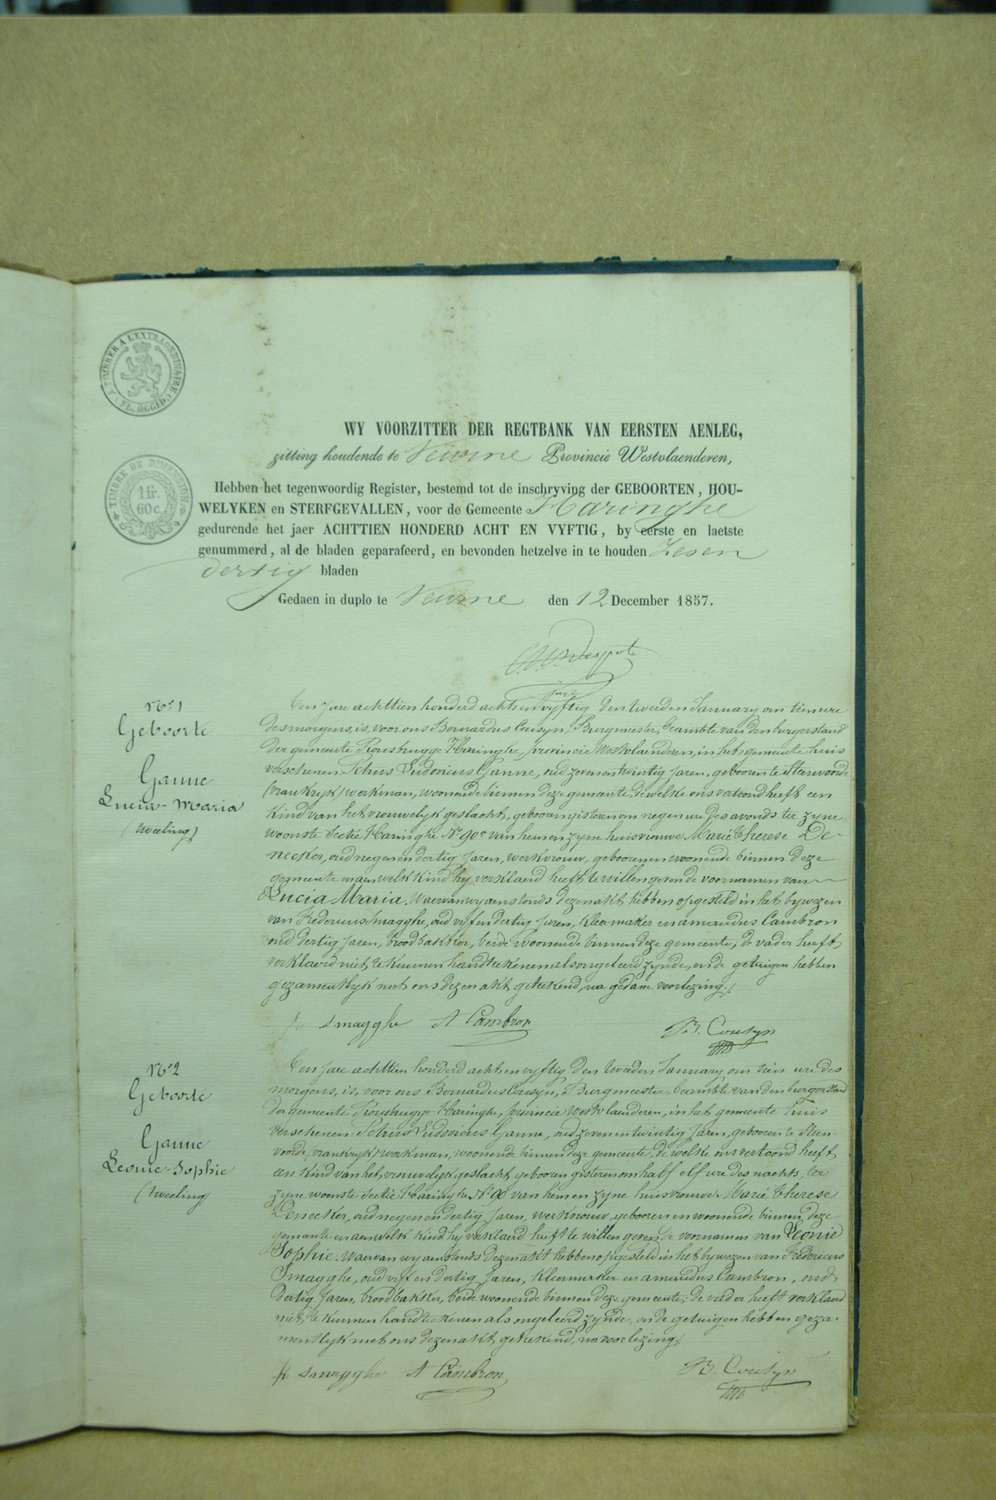 TIMBRE A L'EXTRAORDINAIRE
FL. OCCID.
TIMBRE DE DIMENSION
1 fr.
60 c.
WY VOORZITTER DER REGTBANK VAN EERSTEN AENLEG,
zitting houdende te Veurne Provincie Westvlaenderen,
Hebben het tegenwoordig Register, bestemd tot de inschryving der GEBOORTEN, HOU-
WELYKEN en STERFGEVALLEN, voor de Gemeente Haringhe
gedurende het jaer ACHTTIEN HONDERD ACHT EN VYFTIG, by eerste en laetste
genummerd, al de bladen geparafeerd, en bevonden hetzelve in te houden Zes en
dertig bladen
Gedaen in duplo te Veurne den 12 December 1857.
N° 1
Geboorte
Ganne
Lucia-Maria
(tweeling)
Den jare achttien honderd acht en vyftig den tweeden January om tien ure
des morgens, is voor ons Bernardus Cousyn, Burgmeester, beambte van den burgerstand
der gemeente Rousbrugge Haringhe, provincie Westvlaenderen, in het gemeente huis
verschenen Petrus Ludovicus Ganne, oud zeven en twintig jaren, geboren te Steenvoorde
(vrankryk) werkman, woonende binnen deze gemeente, de welke ons vertoond heeft een
kind van het vrouwelyk geslacht, geboren gisteren om negen ure des avonds ter zyne
woonste sectie Haringhe N° 90 van hem en zyne huisvrouwe Marie Therese De-
necker, oud negen en dertig jaren, werkvrouw, geboren en woonende binnen deze
gemeente, en aen welk kind hy verklaard heeft te willen geven de voornamen van
Lucia Maria. Waervan wy aenstonds dezen akt hebben opgesteld in het bywezen
van Fredericus Smagghe, oud vyf en dertig jaren, kleermaker en Amandus Cambron
oud dertig jaren, broodbakker, beide woonende binnen deze gemeente, de vader heeft
verklaerd niet te kunnen handteekenen als ongeleerd zynde, en de getuigen hebben
gezamentlyk met ons dezen akt geteekend, na gedane voorlezing.
fr Smagghe A Cambron B. Cousyn
N° 2
Geboorte
Ganne
Leonie-Sophie
(tweeling
Den jare achttien honderd acht en vyftig den tweeden January, om tien ure des
morgens, is voor ons Bernardus Cousyn, Burgmeester beambte van den burgerstand
der gemeente Rousbrugge Haringhe, provincie Westvlaenderen, in het gemeente huis
verschenen Petrus Ludovicus Ganne, oud zeven en twintig jaren, geboren te Steen-
voorde, vrankryk) werkman, woonende binnen deze gemeente, de welke ons vertoond heeft
een kind van het vrouwelyk geslacht geboren gisteren om half elf ure des nachts, ter
zyne woonste sectie Haringhe N° 90 van hem en zyne huisvrouwe Marie Therese
Denecker, oud negen en dertig jaren, werkvrouw, geboren en woonende binnen deze
gemeente en aen welk kind hy verklaard heeft te willen geven de voornamen van Leonie
Sophie. Waarvan wy aenstonds dezen akt hebben opgesteld in het bywezen van Fredericus
Smagghe, oud vyf en dertig jaren, kleermaker en Amandus Cambron, oud
dertig jaren, broodbakker, beide woonende binnen deze gemeente; de vader heeft verklaard
niet te kunnen handteekenen als ongeleerd zynde, en de getuigen hebben geza-
mentlyk met ons dezen akt geteekend, na voorlezing.
fr Smagghe A Cambron B. Cousyn